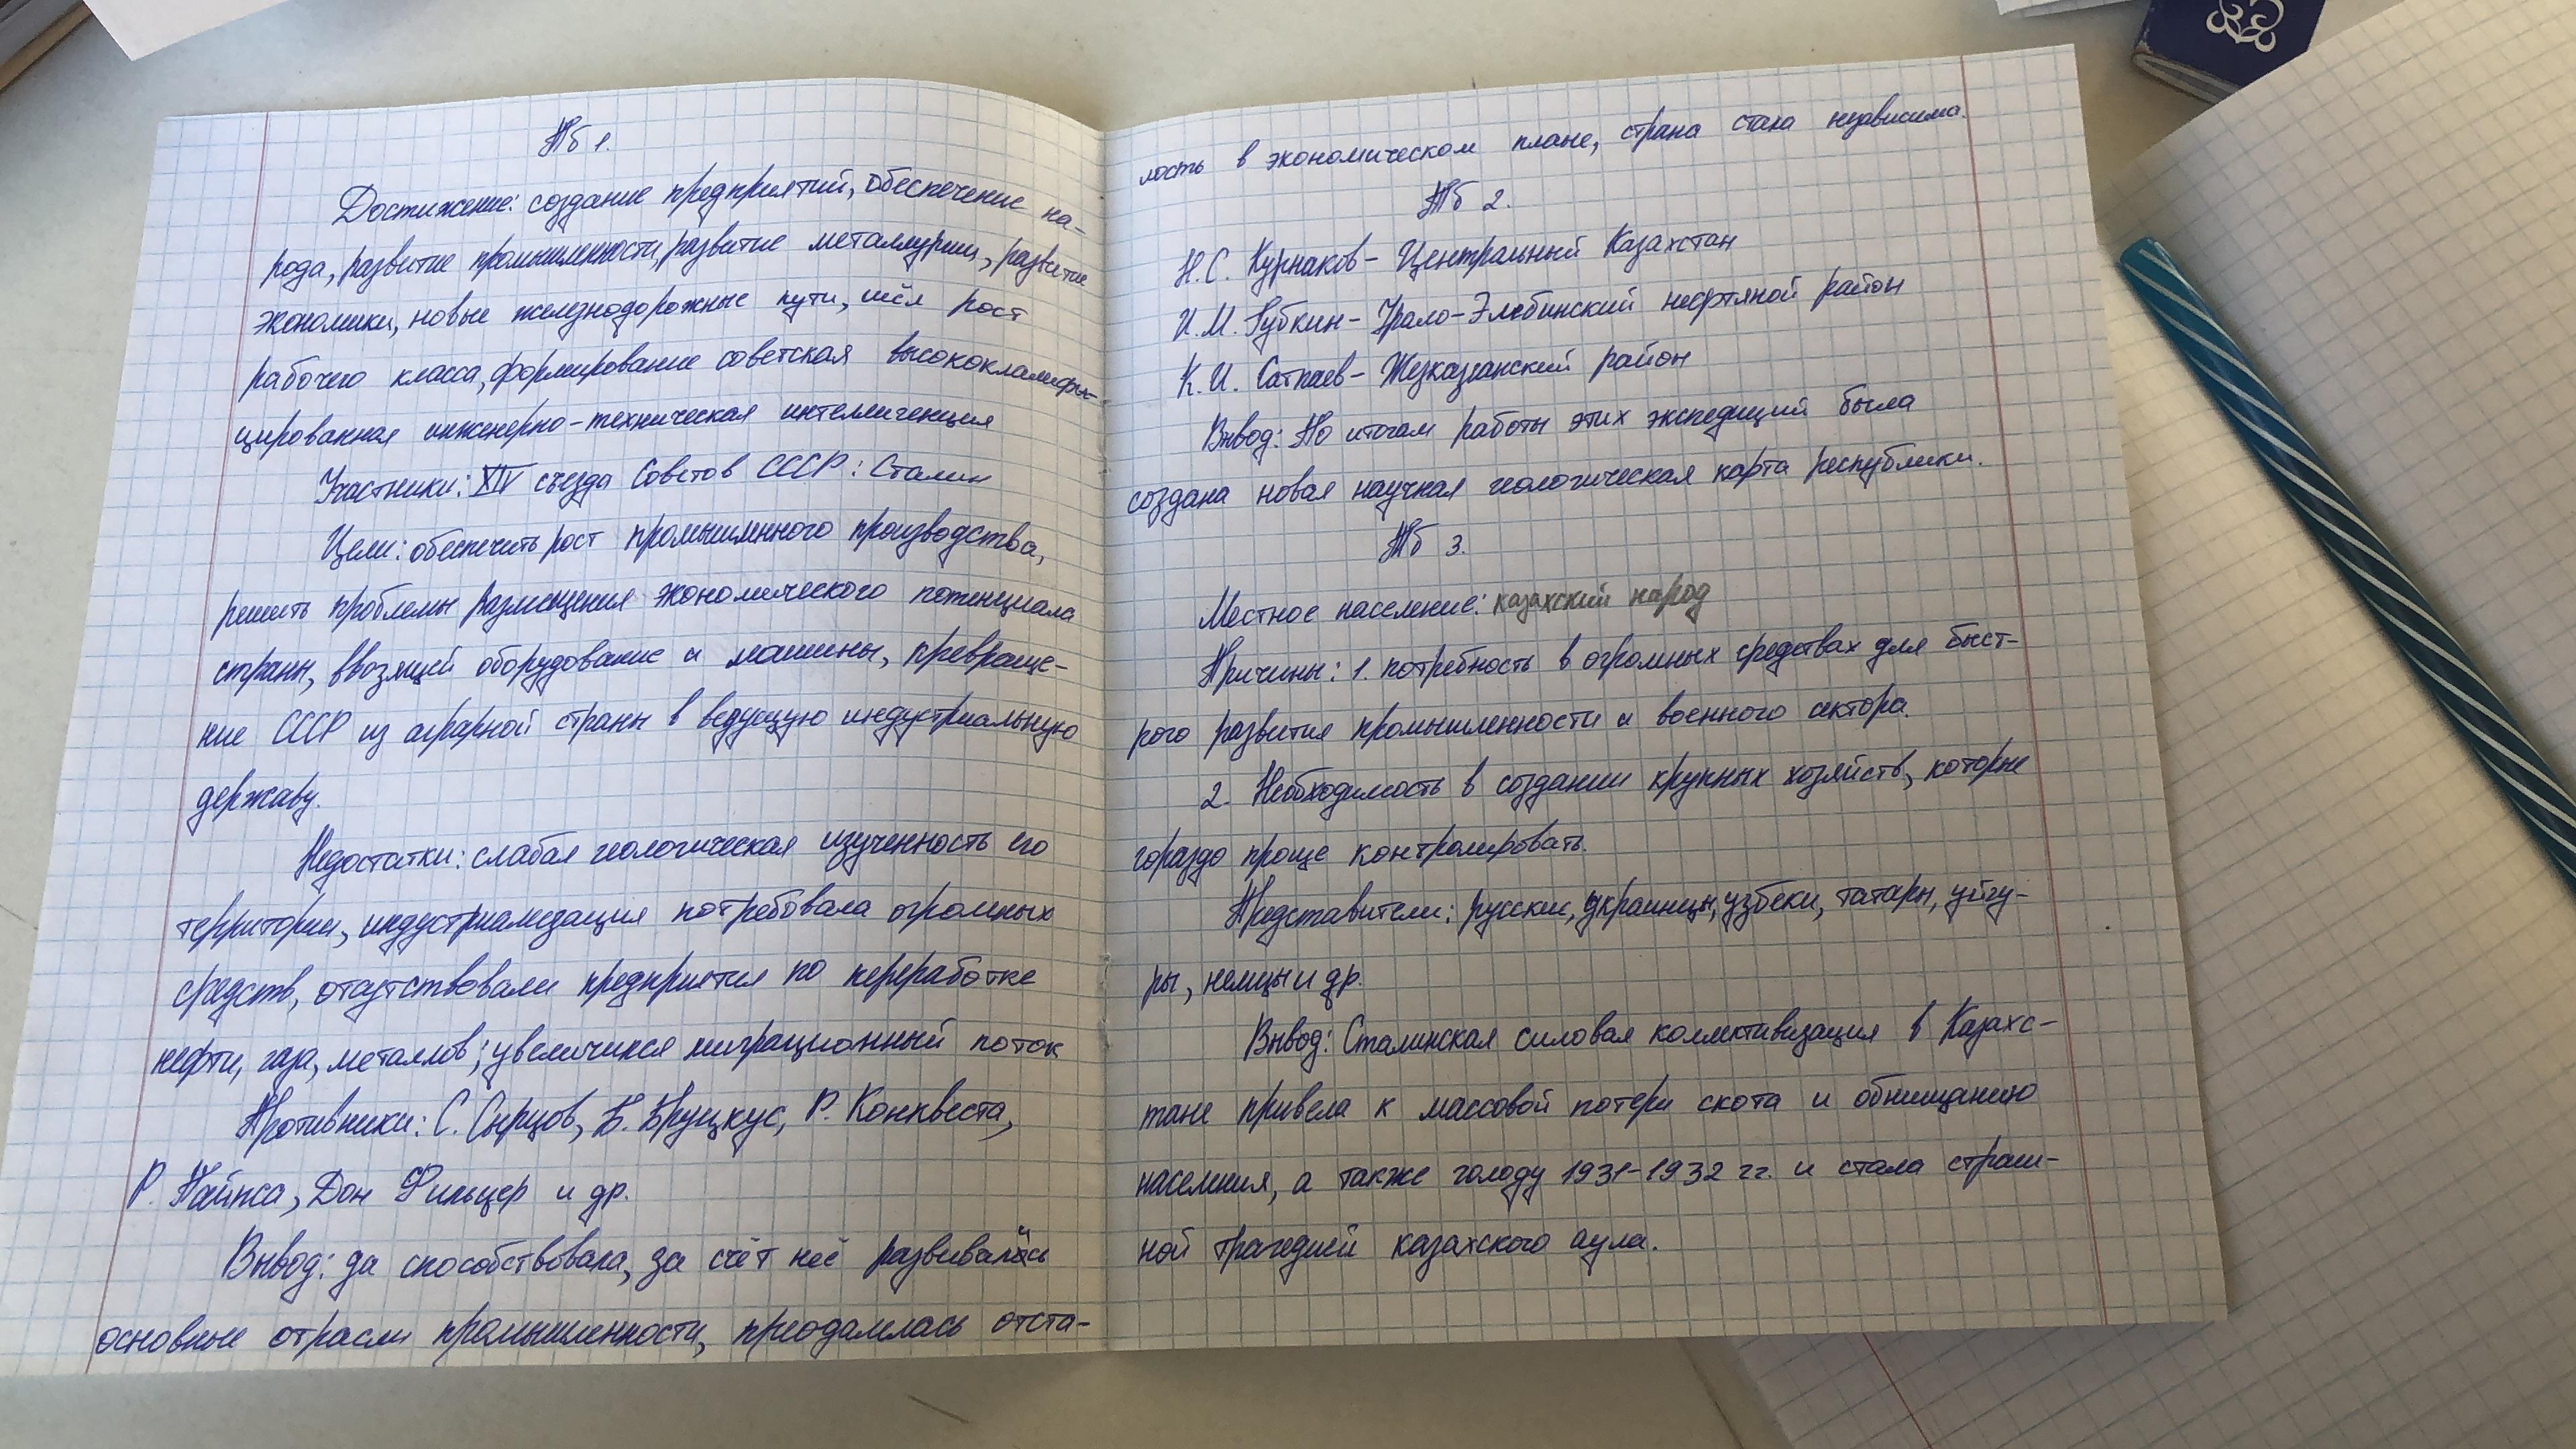 ТБ 1.
Достижение: создание предприятий, обеспечение на-
рода, развитие промышленности, развитие металлургии, развитие
экономики, новые железнодорожные пути, шёл рост
рабочего класса, формирование советская высококлалифи-
цированная инженерно-техническая интеллигенция
Участники: XIV съезда Советов СССР: Сталин
Цели: обеспечить рост промышленного производства,
решить проблемы размещения экономического потенциала
страны, ввозящей оборудование и машины, превраще-
ние СССР из аграрной страны в ведущую индустриальную
державу.
Недостатки: слабая геологическая изученность его
территории, индустриализация потребовала огромных
средств, отсутствовали предприятия по переработке
нефти, газа, металлов; увеличился миграционный поток
Противники: С. Сырцов, Б. Бруцкус, Р. Конквеста,
Р. Пайпса, Дон Фильцер и др.
Вывод: да способствовала, за счёт неё развивались
основные отрасли промышленности, преодалелась отста-
лость в экономическом плане, страна стала независима.
ТБ 2.
Н.С. Курнаков - Центральный Казахстан
И.М. Губкин - Урало-Элебинский нефтяной район
К.И. Сатпаев - Жезказганский район
Вывод: По итогам работы этих экспедиций была
создана новая научная геологическая карта республики.
ТБ 3.
Местное население: казахский народ
Причины: 1. потребность в огромных средствах для быст-
рого развития промышленности и военного сектора.
2. Необходимость в создании крупных хозяйств, которые
гораздо проще контролировать.
Представители: русские, украинцы, узбеки, татары, уйгу-
ры, немцы и др.
Вывод: Сталинская силовая коллективизация в Казахс-
тане привела к массовой потери скота и обнищанию
населения, а также голоду 1931-1932 гг. и стала страш-
ной трагедией казахского аула.